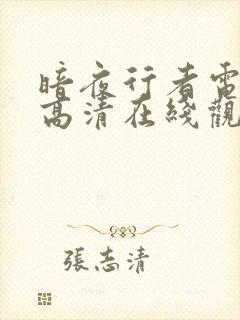 暗夜行者電
高清在綫觀
張志清